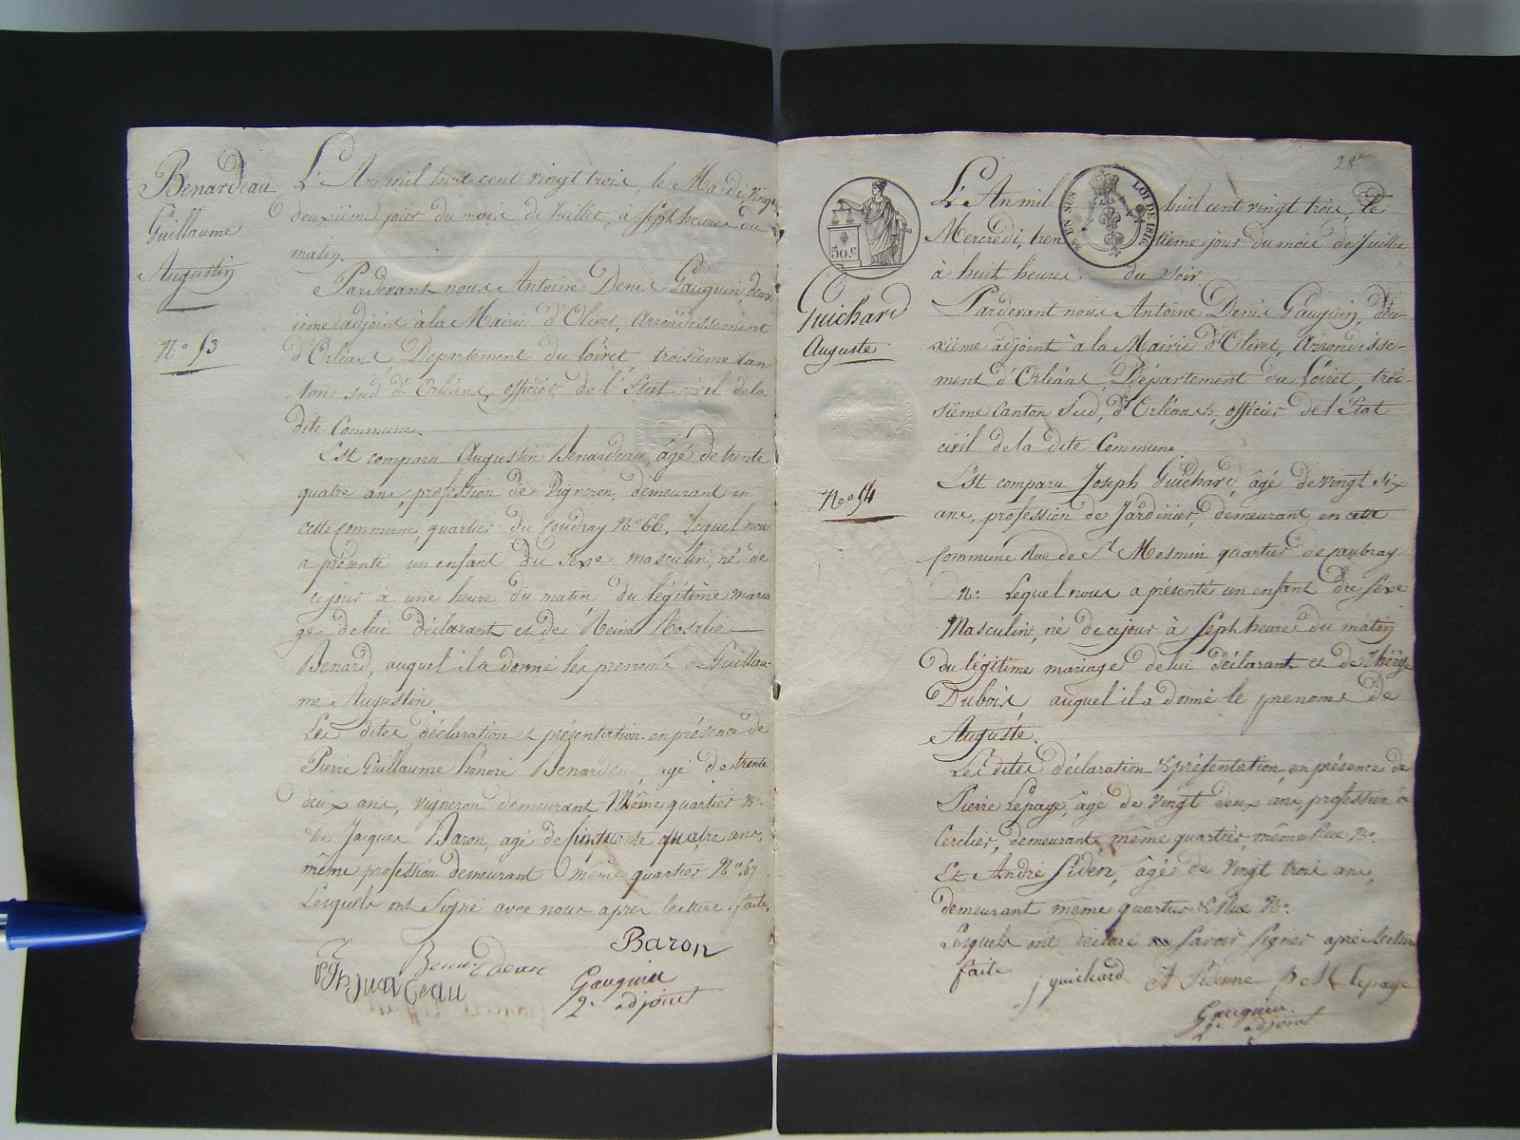 Benardeau
Guillaume
Augustin
N.o 53
L'An mil huit cent vingt trois, le Mardi, vingt
deuxième jour du mois de Juillet, à sept heures du
matin.
Pardevant nous Antoine Denis Gauguin, deux-
ième adjoint à la Mairie d'Olivet, Arrondissement
d'Orléans Département du Loiret, troisième can
ton sud d'Orléans, officier de l'État civil de la
dite Commune
Est comparu Augustin Benardeau, âgé de trente
quatre ans, profession de Vigneron, demeurant en
cette commune, quartier du Coudray N.o 66. Lequel nous
a présenté un enfant du sexe masculin, né de
ce jour à une heure du matin du légitime maria
ge de lui déclarant et de Reine Rosalie
Benard, auquel il a donné les prenoms de Guillau-
me Augustin
Les dites déclaration et présentation en présence de
Pierre Guillaume honoré Benardeau, agé de trente
deux ans, vigneron demeurant Même quartier N.o
Jacques Baron, agé de quatre ans,
même profession demeurant même quartier N.o 67
Lesquels ont Signé avec nous après lecture faite.
Benardeau
Baron
Gauguin
2.e adjoint
28
50 c.
LOI DE 1816
EN SUS
Guichard
Auguste
N.o 54
L'An mil huit cent vingt trois, le
Mercredi, trentième jour du mois de Juillet
à huit heures du soir
Pardevant nous Antoine Denis Gauguin, deu-
xième adjoint à la Mairie d'Olivet, Arrondisse-
ment d'Orléans, Département du Loiret, troi-
sième Canton Sud, d'Orléans, officier de l'État
civil de la dite Commune
Est comparu Joseph Guichard, âgé de vingt six
ans, profession de Jardinier, demeurant en cette
Commune Rue de St Mesmin quartier de
N.o Lequel nous a présenté un enfant du sexe
Masculin, né de ce jour à Sept heures du matin
du légitime mariage de lui déclarant et de Thérèse
Dubois, auquel il a donné le prenoms de
Auguste.
Les dites déclaration & présentation, en présence de
Pierre Lepage, âgé de vingt deux ans, profession de
Cerclier, demeurant même quartier même Rue N.o
Et André âgé de vingt trois ans,
demeurant même quartier & Rue N.o
Lesquels ont déclaré Savoir Signer après lecture
faite
j guichard A lepage
Gauguin
2.e adjoint